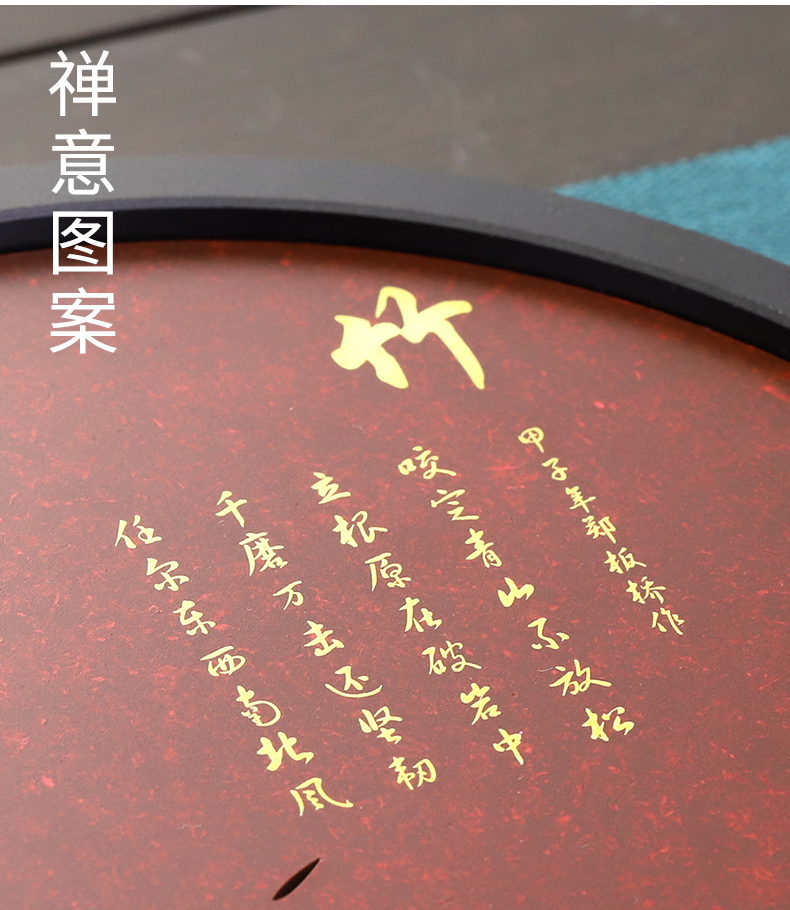 禅意图案
竹
甲子年郑板桥作
咬定青山不放松
立根原在破岩中
千磨万击还坚韧
任尔东西南北风